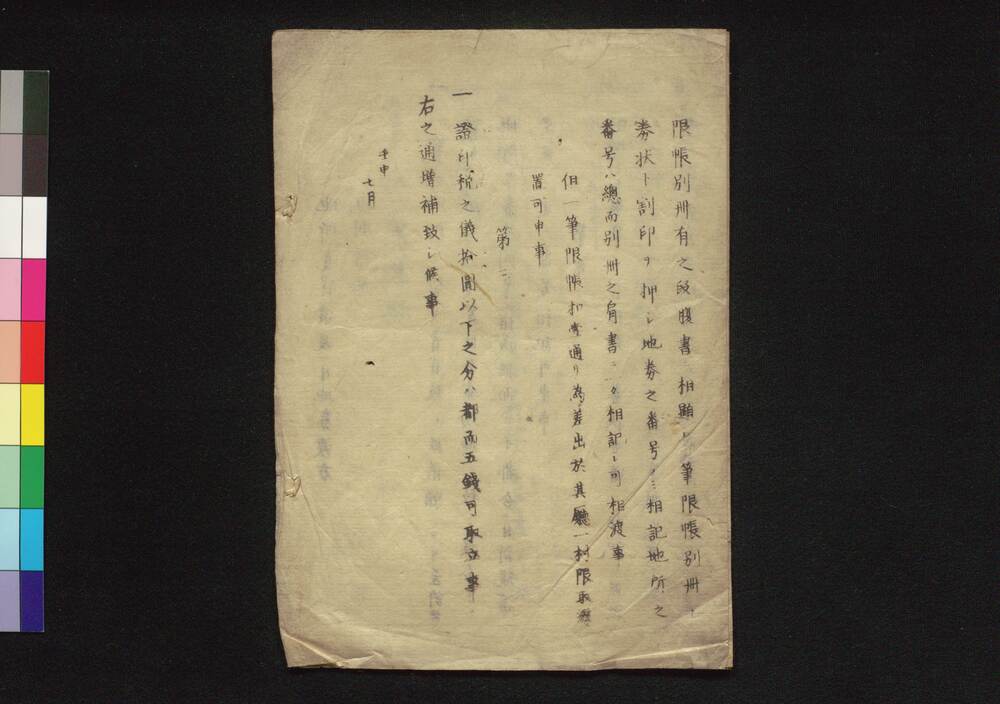 限帳別冊有之段腹書ニ相顕シ筆限帳別冊ト
劵状ト割印ヲ押シ地劵之番号ノミ相記地所之
番号ハ總而別冊之肩書ニ力相記シ可相渡事
但一筆限帳扣壹通り為差出於其廳一村限取纏
置可申事
第三
一證印税之儀拾圓以下之分ハ都而五錢可取立事
右之通増補致シ候事
壬申
七月